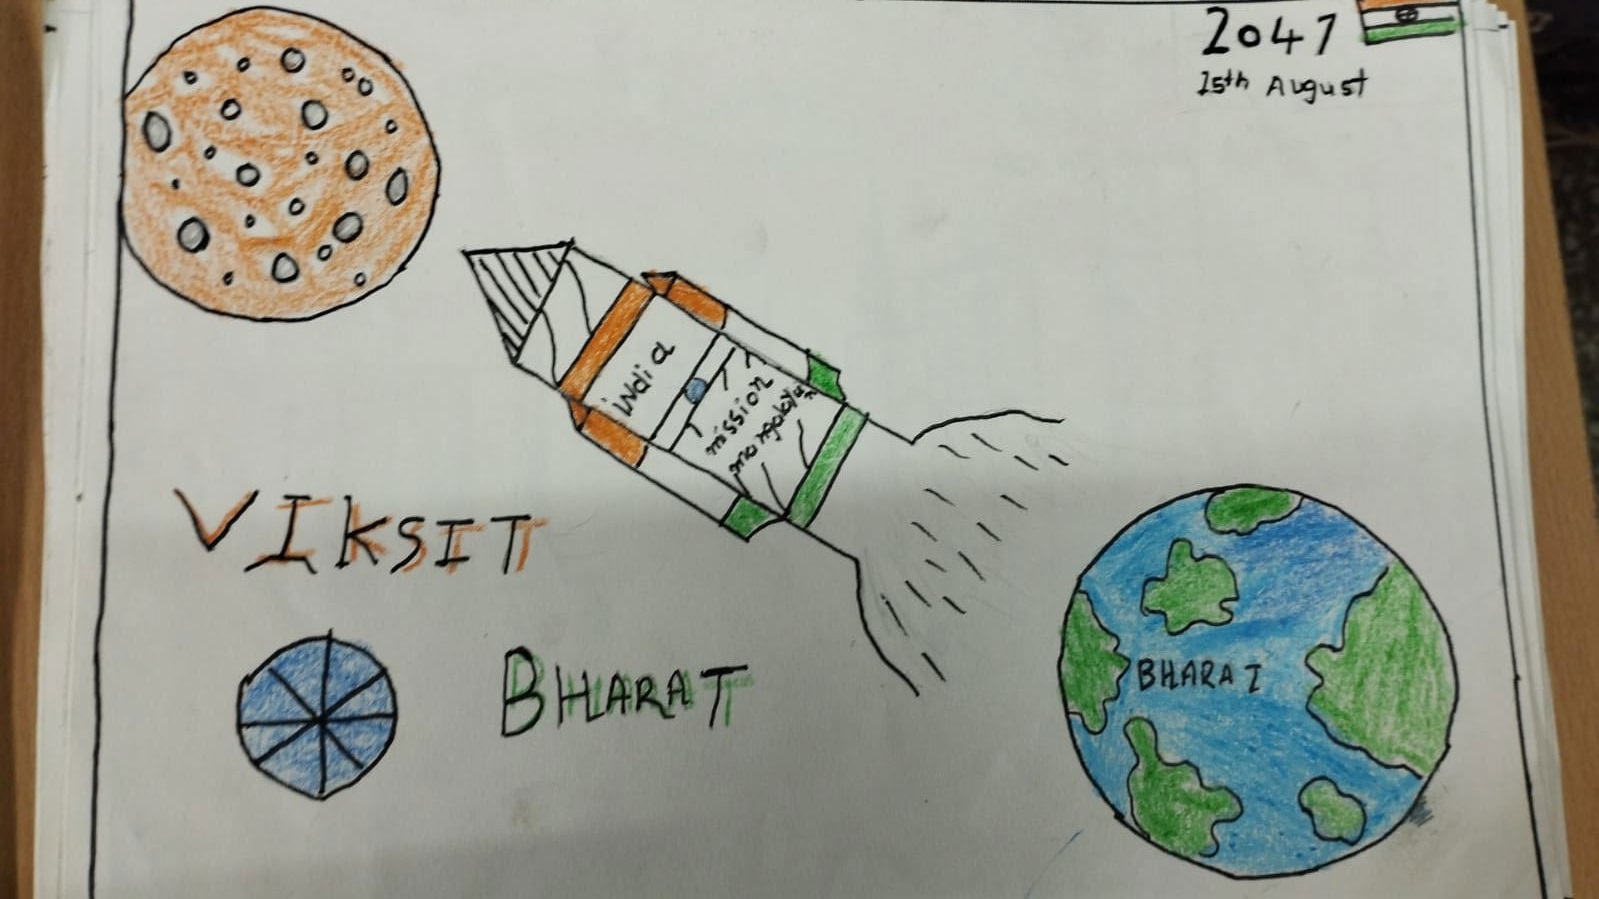 2047
15th August
india
mission
mangalayan
VIKSIT
BHARAT
BHARAT